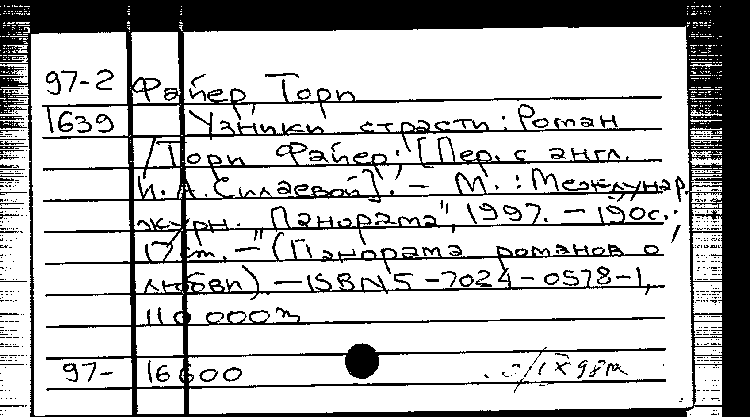 97-2 Файер, Тори
1639 Узники страсти: Роман
/Тори Файер; [Пер. с англ.
И. А. Силаевой]. – М. : Междунар.
журн. "Панорама", 1997. – 190с.;
17см. – (Панорама романов о
любви). – ISBN 5-7024-0578-1,
110 000
97- 16600